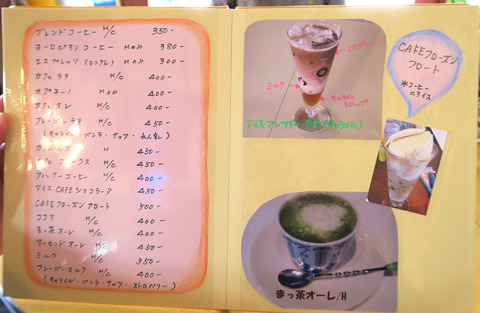 ブレンドコーヒー H/C 350-
ヨーロピアンコーヒー Hのみ 380-
エスプレッソ (シングル) Hのみ 300-
カフェラテ H/C 400-
カプチーノ Hのみ 400-
カフェオレ H/C 400-
フレーバーラテ H/C 450-
(キャラメル・バニラ・ナッツ・
H 450-
H/C 450-
コーヒー H/C 400-
アイスCAFEショコラーデ 450-
CAFEフローズンフロート 500-
ココア H/C 400-
まっ茶オーレ H/C 400-
アーモンドオーレ H/C 450-
ミルク H/C 350-
フレーバーミルク H/C 400-
(キャラメル・バニラ・ナッツ・ストロベリー)
エスプレッソ
ミルク
キャラメルシロップ
アイス・フレーバー・ラテ(キャラメル)
CAFEフローズン
フロート
氷コーヒー
にアイス
まっ茶オーレ/H